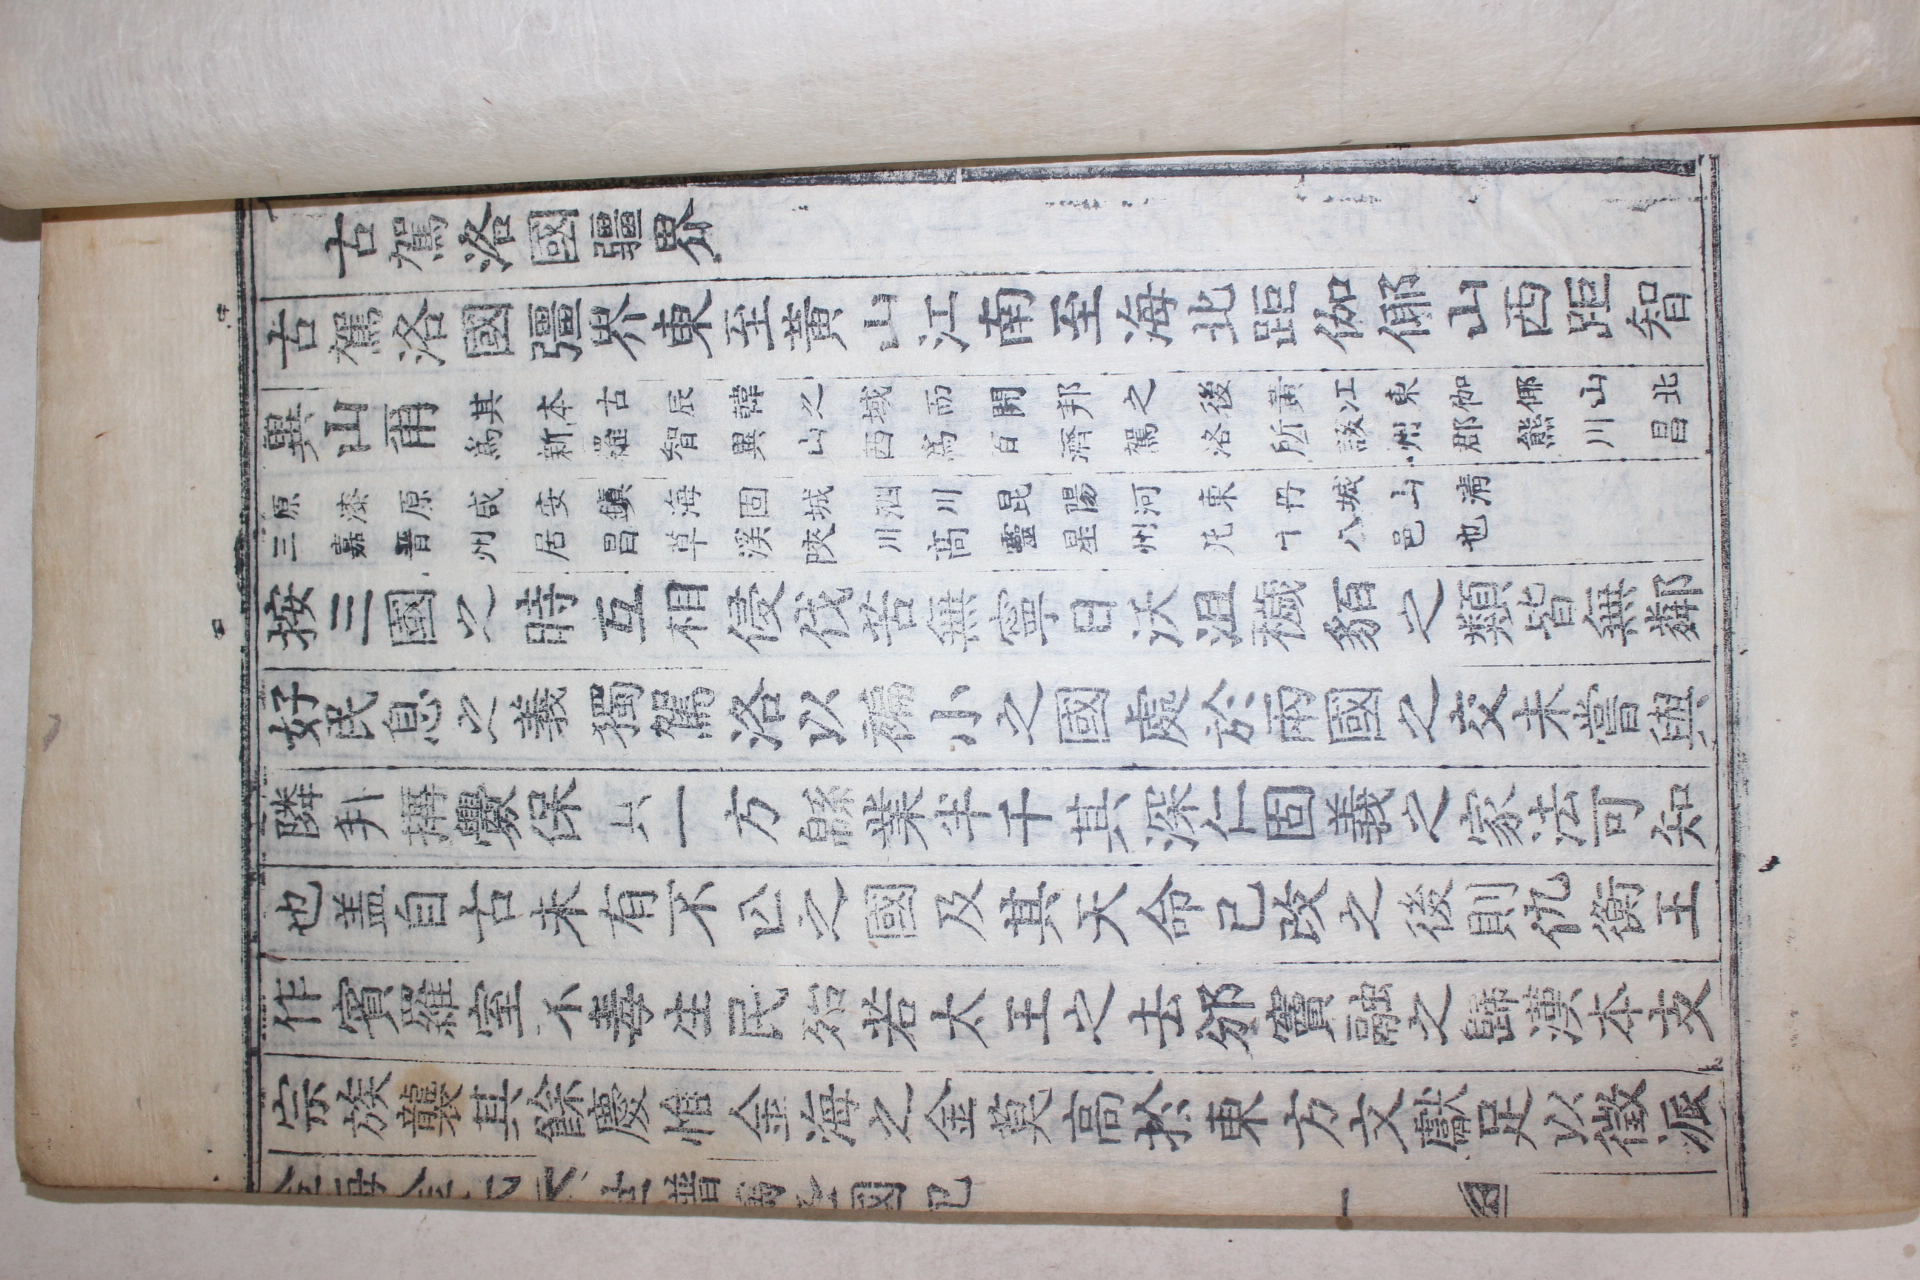 古駕洛國疆界
古駕洛國彊界東至黃山江南至海北距伽倻山西距智
異山爾
其本古辰韓之域而開邦之後黃江東伽倻山北
爲新羅智異山西爲百濟駕洛所該州郡熊川昌
原漆原咸安鎭海固城泗川昆陽河東丹城山淸
三嘉晋州居昌草溪陜川高靈星州凡十八邑也
按三國之時互相侵伐苦無寧日沃沮穢貊之類皆無鄰
好民息之義獨駕洛以褊小之國處於兩國之交未嘗與
隣邦搆釁保此一方緜業半千其深仁固義之家法可知
也盖自古未有不亾之國及其天命已改之後則仇衡王
作賓羅室不毒生民殆若太王之去邠竇融之歸漢本支
宗族襲其餘慶惟金海之金莫高於東方文獻足以徵派
金海金氏世譜 國記 一